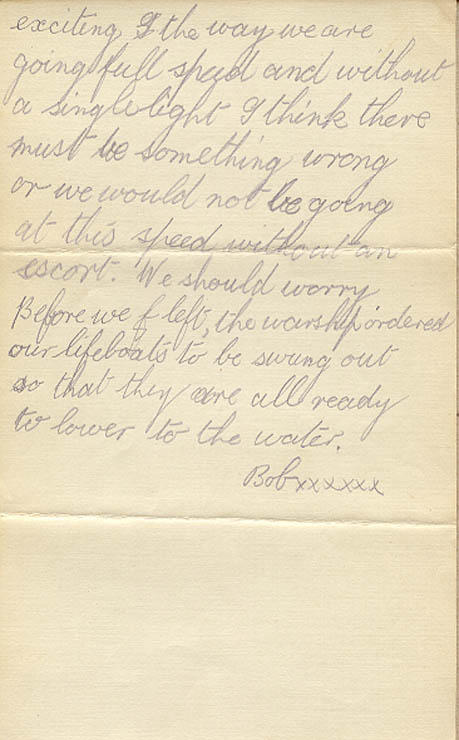 exciting I the way we are
going full speed and without
a single light I think there
must be something wrong
or we would not be going
at this speed without an
escort. We should worry
Before we f left, the warship ordered
our lifeboats to be swung out
so that they are all ready
to lower to the water.
Bob xxxxxx